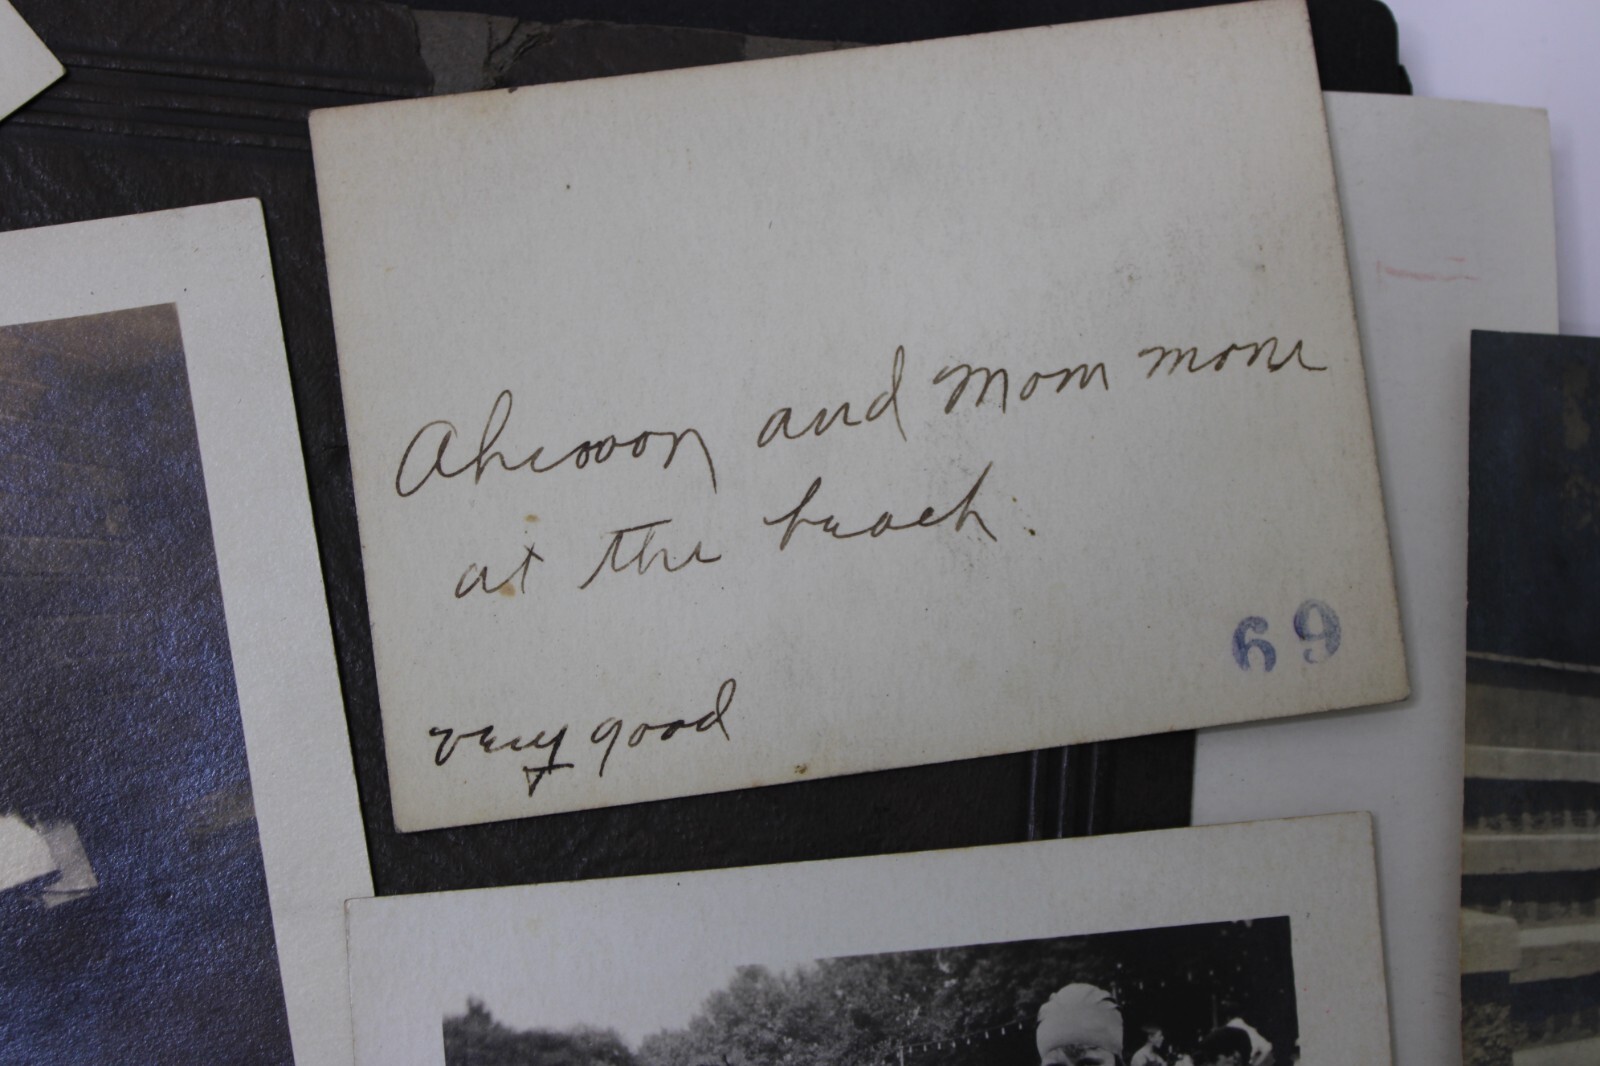 and Mom mone
at the beach.
69
very good